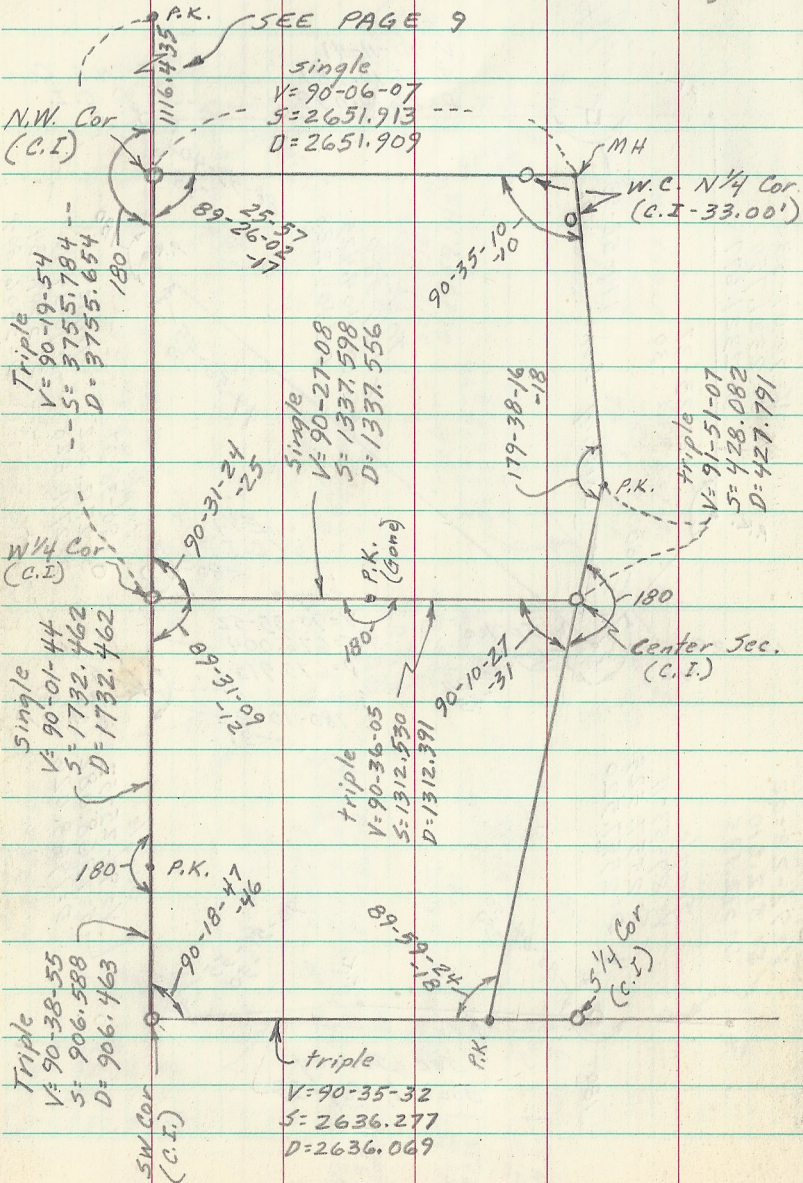 P.K.
SEE PAGE 9
1116.435
single
V= 90-06-07
S= 2651.913
D= 2651.909
N.W. Cor
(C.I)
MH
W.C. N 1/4 Cor.
(C.I-33.00')
25-57
89-26-02
-17
90-35-10
-10
180
Triple
V= 90-19-54
S= 3755.784
D= 3755.654
Single
V= 90-27-08
S= 1337.598
D= 1337.556
179-38-16
-18
P.K.
triple
V= 91-51-07
S= 428.082
D= 427.791
90-31-24
-25
W 1/4 Cor
(C.I)
P.K.
(Gone)
180
180
Center Sec.
(C.I.)
89-31-09
-12
90-10-27
-31
Single
V= 90-01-44
S= 1732.462
D= 1732.462
triple
V= 90-36-05
S= 1312.530
D= 1312.391
180
P.K.
90-18-47
-46
89-59-
S 1/4 Cor
(C.I)
Triple
V= 90-38-55
S= 906.588
D= 906.463
P.K.
SW Cor
(C.I.)
triple
V= 90-35-32
S= 2636.277
D= 2636.069